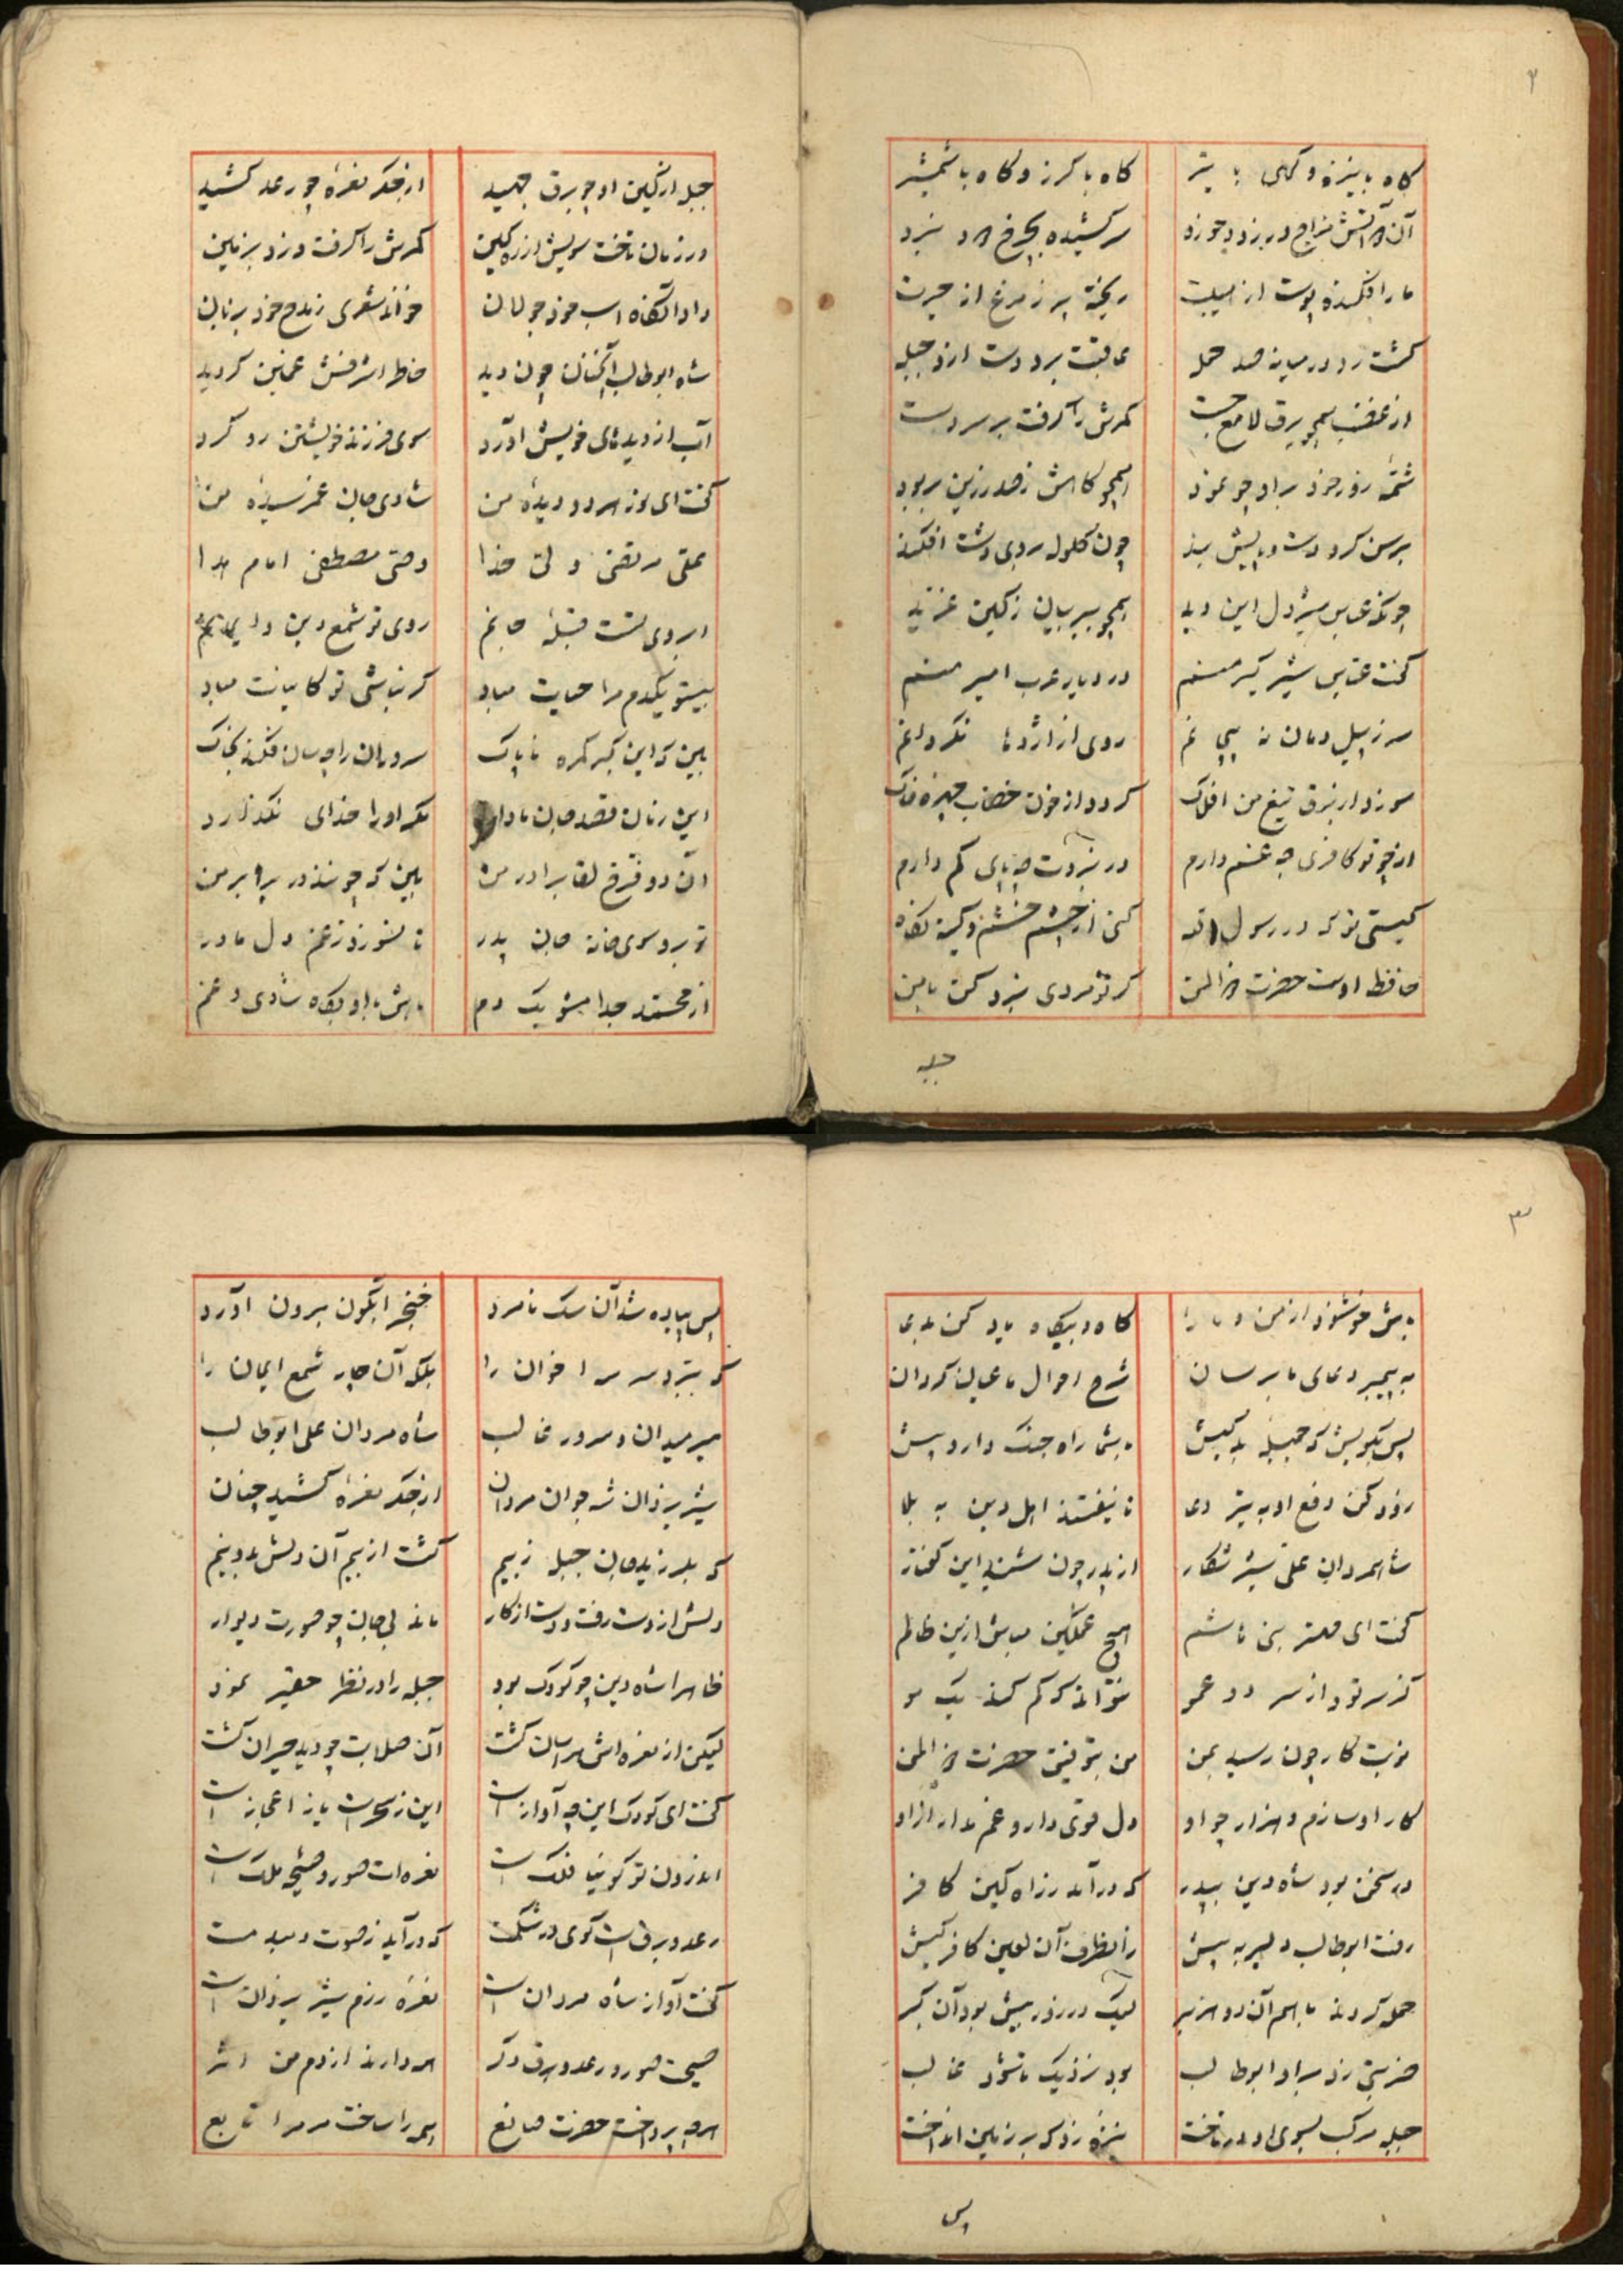 ۲
کاه با نیزه و کهی با تیر کاه با کرز و کاه با شمشیر
آن آتش مزاج در سر کشیده بچرخ نبرد
مار افکنده پوست از هیبت ریخته پر ز مرغ از حیرت
کشت رد در میانه صد حمله عاقبت برد دست ازو جبله
از غضب همچو برق لامع جست کمرش را کرفت بر سر دست
شمهٔ زور خود براو چو نمود همچو کاهش ز صدر زین بربود
برسن کرد دست و پایش بند چون کلوله بروی دشت افکند
چونکه عباس شیر دل این دید همچو ببر بیان ز کین غرید
کفت عباس شیر کیر منم در دیار عرب امیر منم
نه ز پیل دمان نه بیم روی از اژدها نکردانم
سوزد از برق تیغ من افلاک کردد از خون خضاب چهره خاک
از چو تو کافری چه غم دارم در نبردت چه پای کم دارم
کیستی تو که در رسول اله کنی از چشم خشم و کینه نکاه
حافظ اوست حضرت ذوالمن کر تو مردی نبرد کن با من
جبله
جبله از کین او چو برق جهید از جکر نعرهٔ چو رعد کشید
در زمان تاخت سویش از ره کین کمرش را کرفت و زد بزمین
داد آنکاه اسب خود جولان خواند شعری ز مدح خود بزبان
شاه ابوطالب آنچنان چون دید خاطر اشرفش غمین کردید
آب از دیدهای خویش آورد سوی فرزند خویشتن رو کرد
کفت ای نور هر دو دیدهٔ من شادی جان غم رسیدهٔ من
علی مرتضی ولی خدا وصی مصطفی امام هدا
ابروی تست قبلهٔ جانم روی تو شمع دین و ایمانم
بیتو یکدم مرا حیات مباد کر نباشی تو کاینات مباد
ببین که این کبر کمره ناپاک سروران را چه سان فکند بخاک
این زمان قصد جان ما دارد مکر او را خدای نکذارد
آن دو فرخ لقا برادر من ببین که چونند در برابر من
تو برو سوی خانه جان پدر تا نسوزد ز غم دل مادر
از محمد جدا مشو یک دم باش با او بکاه شادی و غم
۳
باش خوشنود از من و ما را کاه و بیکاه یاد کن بدعا
به پیمبر دعای ما برسان شرح احوال ما عیان کردان
پس بکویش که جبله بدکیش بشما راه جنک دارد پیش
زود کن دفع او به تیر دعا تا نیفتند اهل دین به بلا
شاه مردان علی شیر شکار از پدر چون شنید این کفتار
کفت ای مهتر بنی هاشم هیچ غمکین مباش ازین ظالم
کز سر تو و از سر دو عمو نتواند که کم کند یک مو
نوبت کار چون رسید بمن من بتوفیق حضرت ذوالمن
کار او سازم و هزار چو او دل قوی دار و غم مدار ازاو
در سخن بود شاه دین بپدر که درآمد ز راه کین کافر
رفت ابوطالب دلیر به پیش زانطرف آن لعین کافر کیش
حمله کردند با هم آن دو هزبر لیک در زور پیش بود آن کبر
ضربتی زد براو ابوطالب بود نزدیک تا شود غالب
جبله مرکب بسوی او در تاخت نیزه زد که بر زمین انداخت
پس
پس پیاده شد آن سک نامرد خنجر آبکون برون آورد
که ببرد سر سرافران را بکشد آن چار شمع ایمان را
میر میدان و سرور غالب شاه مردان علی ابوطالب
شیر یزدان شه جوان مردان از جکر نعرهٔ کشید چنان
که بلرزید جان جبله ز بیم کشت از بیم آن دلش بدو نیم
دلش از دست رفت و دست از کار ماند بی جان چو صورت دیوار
ظاهرا شاه دین چو کودک بود جبله را در نظر حقیر نمود
لیکن از نعره اش هراسان کشت آن صلابت چو دید حیران کشت
کفت ای کودک این چه آواز است این ز سحر است یا ز اعجاز است
اندرون تو کوییا فلک است نعره ات صور و صیحهٔ ملک است
رعد و برق است کوی در شکمت که درآید ز صوت
کفت آواز شاه مردان است نعرهٔ رزم شیر یزدان است
صیحهٔ صور و رعد و برق دکر همه دارند از دم من اثر
هر چه پرداخت حضرت صانع همه را ساخت مر مرا تابع